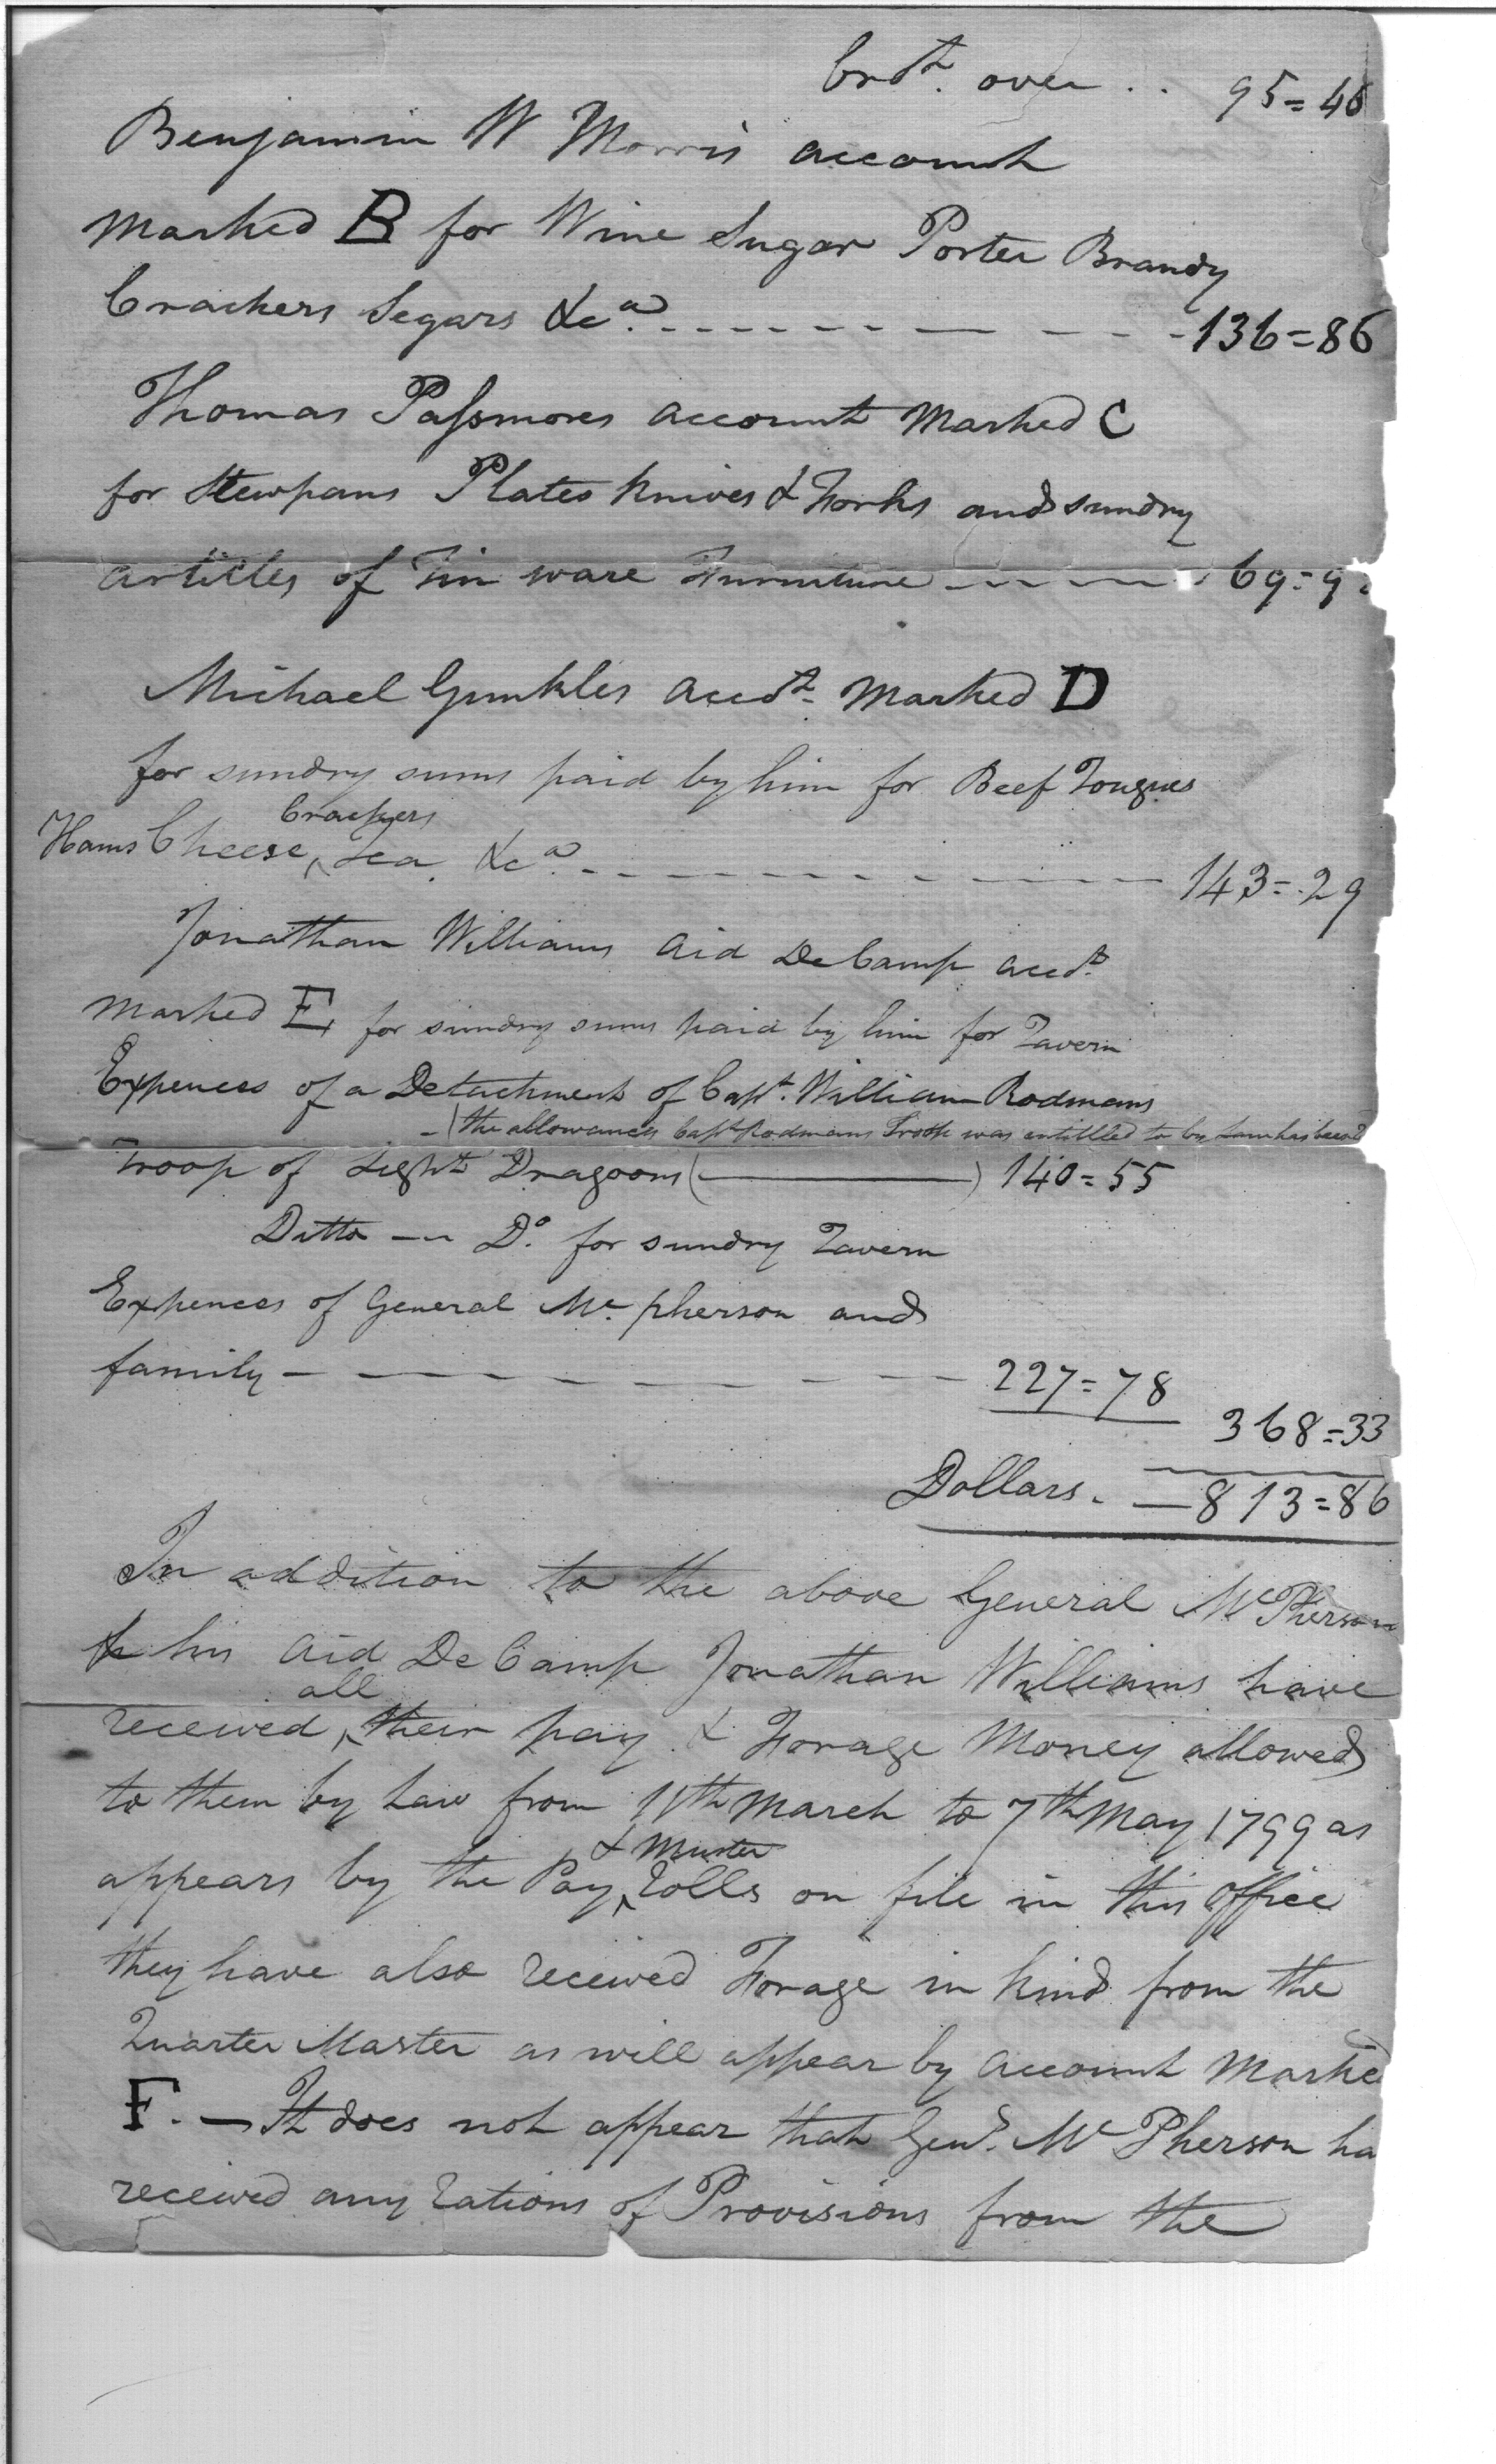 Brot. over . . 95=46
Benjamin W Morris account
Marked B for Wine Sugar Porter Brandy
Crackers Segars &ca. 136=86
Thomas Paſsmores account Marked C
for Stewpans Plates Knives & Forks and sundry
articles of Tin ware Furniture 69=9
Michael Gunkles accot. Marked D
for sundry sums paid by him for Beef Tongues
Crackers
Hams Cheese, Tea &ca. 143=29
Jonathan Williams Aid De Camp accot.
Marked E for sundry sums paid by him for Tavern
Expences of a Detachment of Capt. William Rodmans
(the allowances Capt Rodmans Troop was entitled to by Law has been
Troop of Light Dragoons ( ) 140=55
Ditto — Do. for sundry Tavern
Expences of General Mc.pherson and
family 227=78
368=33
Dollars. — 813=86
In addition to the above General McPherson
& his Aid De Camp Jonathan Williams have
all
received ‸ their pay & Forage Money allowed
to them by Law from 11th March to 7th May 1799 as
& Muster
appears by the Pay ‸ Rolls on file in this office
they have also received Forage in kind from the
Quarter Master as will appear by account Marked
F. — It does not appear that Genl. McPherson ha
received any rations of Provisions from the